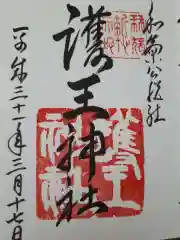 和気公綜社
護王神社
護王神社
平成三十一年三月十七日